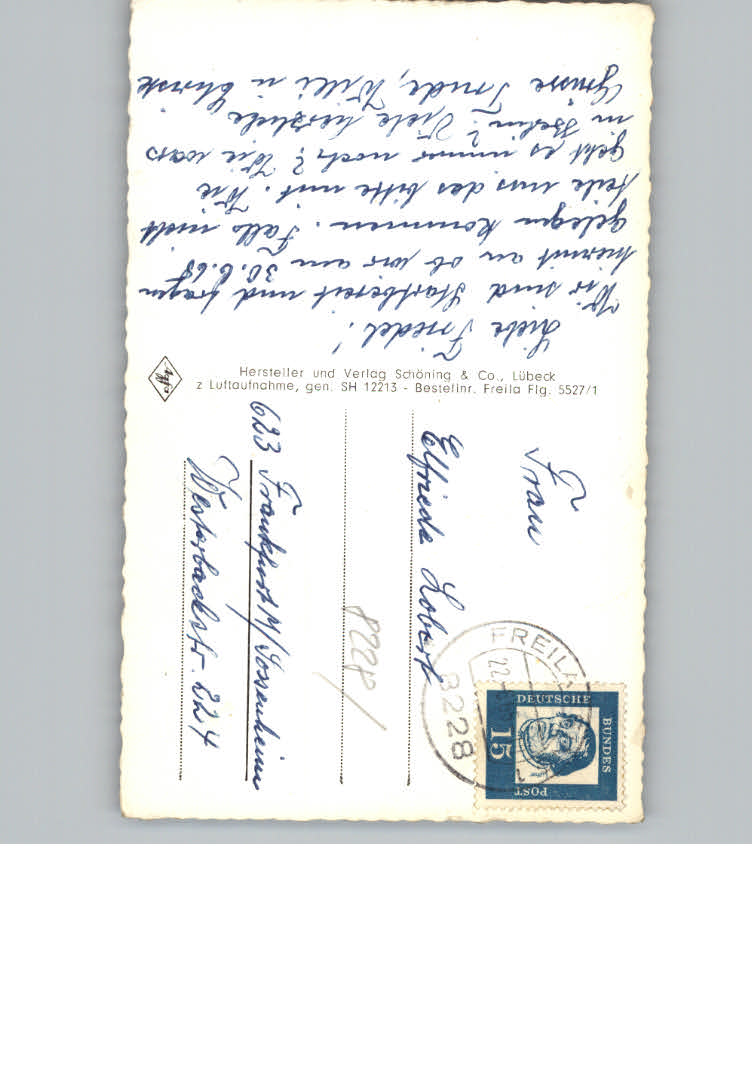 Liebe Friedel!
Wir sind Startbereit und fragen
hiermit an ob wir am 30.6.68
gelegen kommen. Falls nicht
teile uns das bitte mit. Wie
geht es immer noch? Wie wars
in Berlin? Viele herzliche
Grüsse Trude, Willi u. Christa
Agfa
Hersteller und Verlag Schöning & Co., Lübeck
z Luftaufnahme, gen. SH 12213 - Bestellnr. Freila Flg. 5527/1
Frau
Elfriede Lobert
623 Frankfurt M/Sossenheim
Westerbachstr. 224
8228
FREILA
8228
22.
DEUTSCHE
BUNDES
POST
15